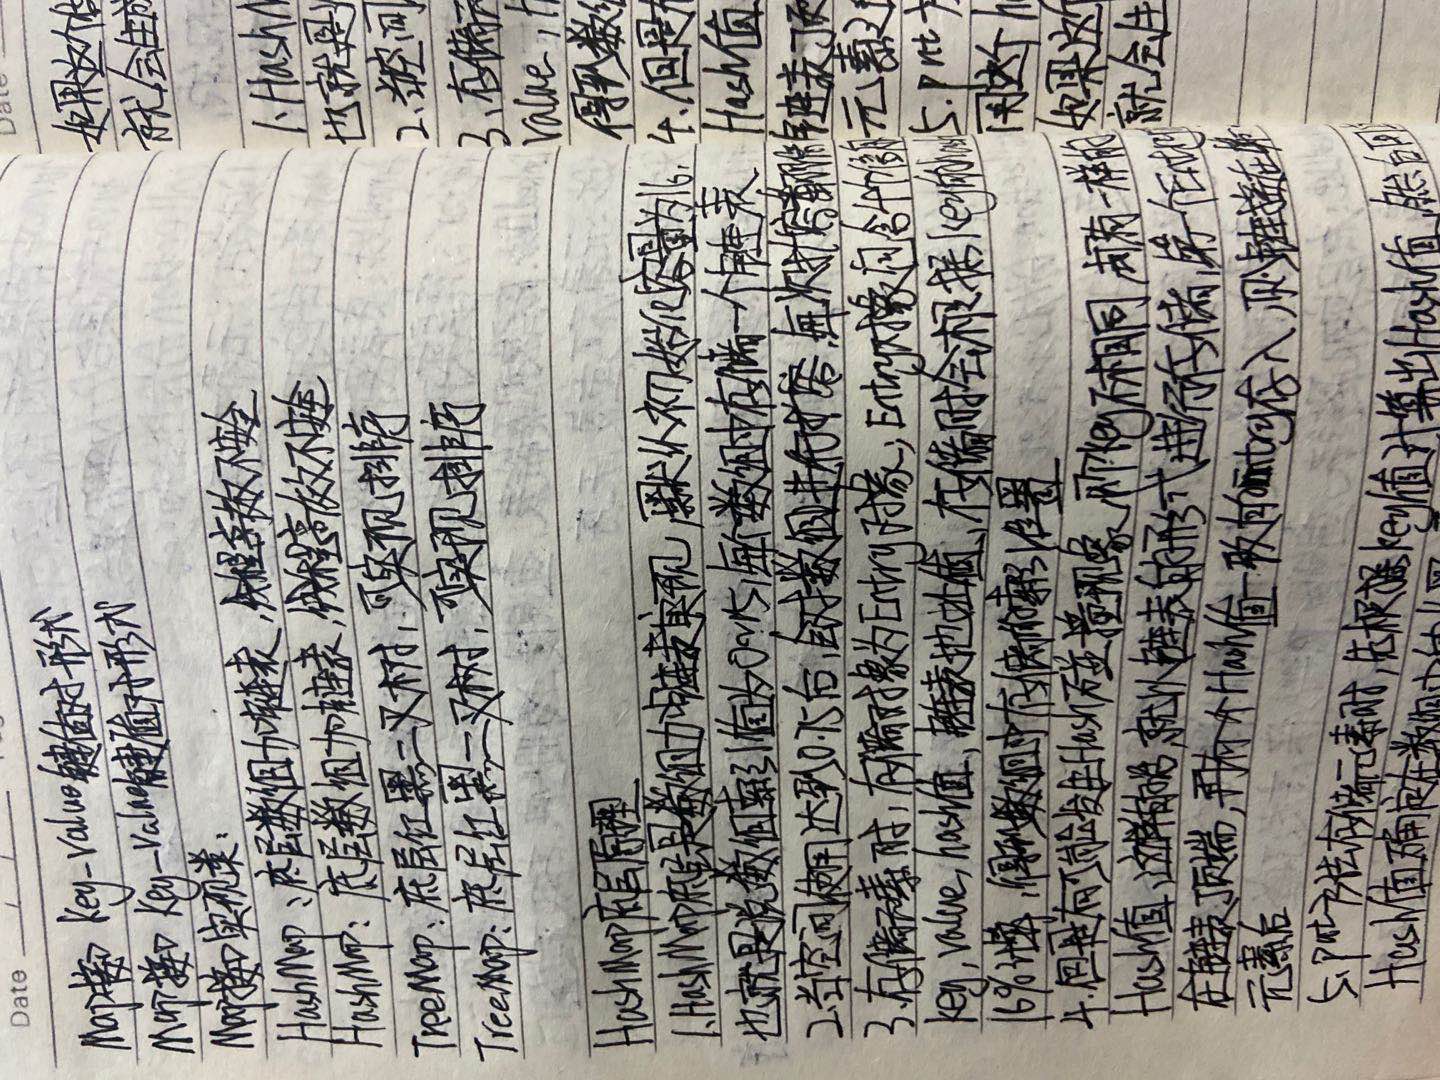 Date / /
Map接口 Key-Value键值对形式
Map接口 Key-Value键值对形式
Map接口实现类:
HashMap:底层数组加链表,线程高效不安全
HashMap:底层数组加链表,线程高效不安全
TreeMap:底层红黑二叉树,可实现排序
TreeMap:底层红黑二叉树,可实现排序
HashMap底层原理
1.HashMap底层是数组加链表实现,默认初始化容量为16,
也就是说数组索引值为0~15,每个数组中存储一个链表
2.当空间使用达到0.75后,会对数组进行扩容,每次扩容都
3.存储元素时,存储对象为Entry对象,Entry对象包含4个信息
key,value,hash值,链表地址值,存储时会根据key的hash
16%计算,得到数组中存储的索引位置
4.但是有可能发生Hash碰撞现象,两个key不相同,却有一样的
Hash值,这样的话,就以链表的形式进行存储,第一个Entry
在链表顶端,再有个Hash值一致的Entry存入,则链接在
元素后
5.put方法存储元素时,先根据key值计算出Hash值,然后用
Hash值确定在数组中的
Date
如果这个
就会生成
1.HashM
也就是
2.当空间
3.存储元
value,
得到数组
4.但是有
Hash值
链表顶
元素之
5.put方
用这个h
如果这个
就会生